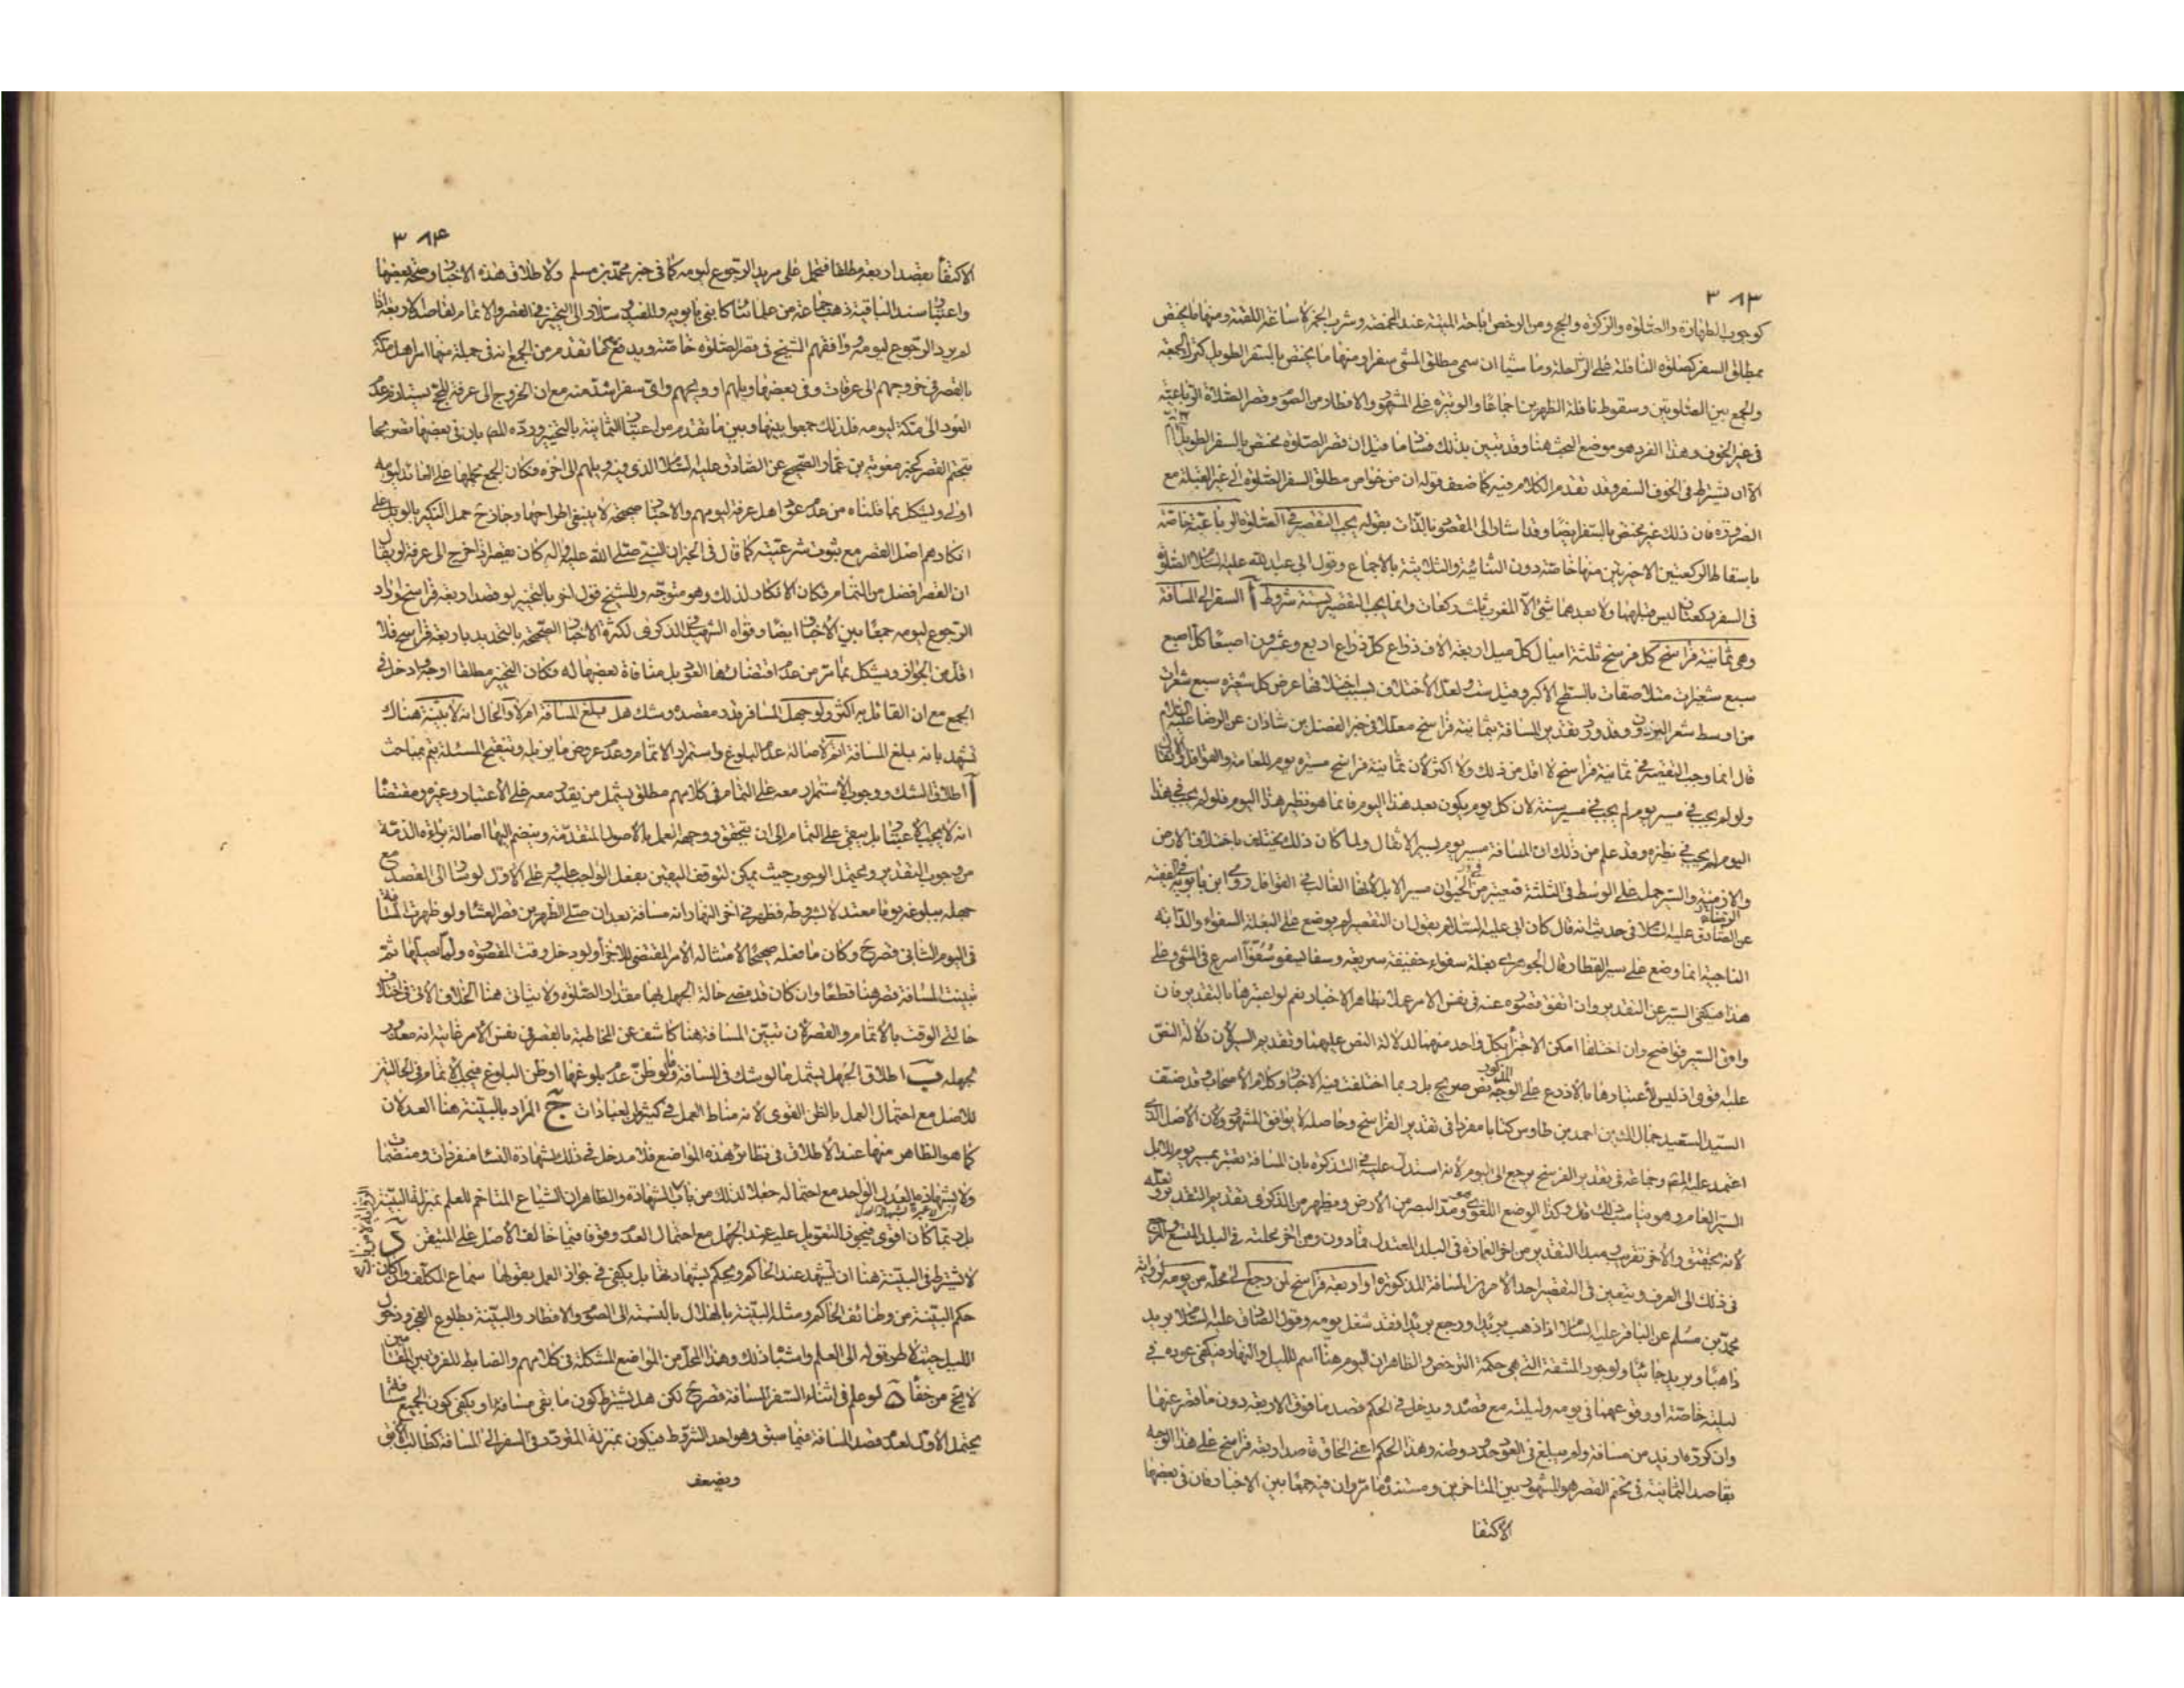 ٣٨٣
كوجوب الطهارة والصلوة والزكوة والحج ومن الرخص اباحة الميتة عند المخمصة وشرب الخمر لاساغة اللقمة ومنها ما يختص
بمطلق السفر كصلوة النافلة على الراحلة وماشيا ان سمى مطلق المشى سفرا ومنها ما يختص بالسفر الطويل كترك الجمعة
والجمع بين الصلوتين وسقوط نافلة الظهرين اجماعا والوتيرة على المشهور والافطار من الصوم وقصر الصلاة الرباعية
فى غير الخوف وهذا الفرد هو موضع البحث هنا وقد تبين بذلك فساد ما قيل ان قصر الصلوة مختص بالسفر الطويل
الا ان يشترط فى الخوف السفر وقد تقدم الكلام فيه كما ضعف قوله ان من خواص مطلق السفر الصلوة الى غير القبلة مع
الضرورة فان ذلك غير مختص بالسفر ايضا وقد اشار الى المقصود بالذات بقوله يجب التقصير فى الصلوة الرباعية خاصة
باسقاط الركعتين الاخيرتين منها خاصة دون الثنائية والثلاثية بالاجماع وقول ابى عبد الله عليه السلام الصلوة
فى السفر ركعتان ليس قبلهما ولا بعدهما شئ الا المغرب ثلث ركعات وانما يجب التقصير بستة شروط آ السفر الى المسافة
وهى ثمانية فراسخ كل فرسخ ثلثة اميال كل ميل اربعة الاف ذراع كل ذراع اربع وعشرون اصبعا كل اصبع
سبع شعيرات متلاصقات بالسطح الاكبر وقيل ست ولعل الاختلاف بسبب اختلافها عرض كل شعيرة سبع شعرات
من اوسط شعر البرذون وقد ورد تقدير المسافة بثمانية فراسخ معللا فى خبر الفضل بن شاذان عن الرضا عليه السلام
قال انما وجب التقصير فى ثمانية فراسخ لا اقل من ذلك ولا اكثر لان ثمانية فراسخ مسيرة يوم للعامة والقوافل والاثقال
ولو لم يجب فى مسير يوم لم يجب فى مسير سنة لان كل يوم يكون بعد هذا اليوم فانما هو نظير هذا اليوم فلو لم يجب فى هذا
اليوم لم يجب فى نظيره وقد علم من ذلك ان المسافة مسير يوم بسير الاثقال ولما كان ذلك يختلف باختلاف الارض
والازمنة والسير حمل على الوسط فى الثلثة قيعتبر من الحيوان مسير الابل لانها الغالب فى القوافل روى ابن بابويه فى الفقيه
عن الصادق عليه السلام فى حديث انه قال كان ابى عليه السلام يقول ان التقصير لم يوضع على البغلة السفواء والدابة
الناجية انما وضع على سير القطار وقال الجوهرى بغلة سفواء خفيفة سريعة وسفا يسفو سفوا اسرع فى المشى وعلى
هذا فيكفى السير عن التقدير وان اتفق قصوره عنه فى نفس الامر عملا بظاهر الاخبار نعم لو اعتبرها بالتقدير فان
وافق السير فواضح وان اختلفا امكن الاجتزاء بكل واحد منهما لدلالة النص عليهما وتقديم السير لان دلالة النص
عليه قوى اذ ليس لاعتبارها بالاذرع على الوجه المذكور نص صريح بل ربما اختلفت فيه الاخبار وكلام الاصحاب وقد صنف
السيد السعيد جمال الدين احمد بن طاوس كتابا مفردا فى تقدير الفراسخ وحاصله لا يوافق المشهور ولان الاصل الذى
اعتمد عليه المصنف وجماعة فى تقدير الفرسخ يرجع الى اليوم لانه استدل عليه فى التذكرة بان المسافة تعتبر بمسير يوم للابل
السير العام وهو يناسب ذلك قال وكذا الوضع اللغوى وهو مد البصر من الارض ويظهر من الذكرى تقديم التقدير ولعله
لانه تحقيق والاخر تقريب ومبدا التقدير من اخر العمارة فى البلد المعتدل فما دون ومن اخر محلته فى البلد المتسع والمرجع
فى ذلك الى العرف ويتعين فى التقصير احد الامرين المسافة المذكورة او اربعة فراسخ لمن رجع الى محله من يومه لرواية
محمد بن مسلم عن الباقر عليه السلام اذا ذهب بريدا ورجع بريدا فقد شغل يومه وقول الصادق عليه السلام بريد
ذاهبا وبريد جائيا ولوجود المشقة التى هى حكمة الترخص والظاهر ان اليوم هنا اسم لليل والنهار فيكفى عوده فى
ليلته خاصة او وقوعهما فى يومه وليلته مع قصده ويدخل فى الحكم قصد ما فوق الاربعة دون ما قصر عنها
وان كرره ازيد من مسافة ولم يبلغ فى العود حدود وطنه وهذا الحكم اعنى الحاق قاصد اربعة فراسخ على هذا الوجه
بقاصد الثمانية فى تحتم القصر هو المشهور بين المتاخرين ومستنده ما مر وان فيه جمعا بين الاخبار فان فى بعضها
الاكتفا
٣٨٤
الاكتفاء بقصد اربعة مطلقا فتحمل على مريد الرجوع ليومه كما فى خبر محمد بن مسلم ولاطلاق هذه الاخبار وصحة بعضها
واعتبار سند الباقية ذهب جماعة من علمائنا كابنى بابويه والمفيد وسلار الى التخيير فى القصر والاتمام لقاصد الاربعة اذا
لم يرد الرجوع ليومه ووافقهم الشيخ فى قصر الصلوة خاصة ويدفع ما تقدم من الجمع انه فى جملة منها امر اهل مكة
بالقصر فى خروجهم الى عرفات وفى بعضها ويلهم او ويحهم واى سفر اشد منه مع ان الخروج الى عرفة للحج يستلزم عدم
العود الى مكة ليومه فلذلك جمعوا بينها وبين ما تقدم من اعتبار الثمانية بالتخيير ورده المصنف بان فى بعضها تصريحا
بتحتم القصر كخبر معوية بن عمار الصحيح عن الصادق عليه السلام الذى فيه ويلهم الى اخره فكان الجمع بحملها على العائد ليومه
اولى ويشكل بما قلناه من عدم عود اهل عرفة ليومهم والاخبار صحيحة لا ينبغى اطراحها وجاز ح حمل النكير بالويل على
انكارهم اصل القصر مع ثبوت شرعيته كما قال فى الخبر ان النبى صلى الله عليه واله كان يقصر اذا خرج الى عرفة او يقال
ان القصر افضل من التمام فكان الانكار لذلك وهو متوجه وللشيخ قول اخر بالتخيير لو قصد اربعة فراسخ واراد
الرجوع ليومه جمعا بين الاخبار ايضا وقواه الشهيد فى الذكرى لكثرة الاخبار الصحيحة بالتحديد باربعة فراسخ فلا
اقل من الجواز ويشكل بما مر من عدم اقتضائها القول بل منافاة بعضها له فكان التخيير مطلقا اوجه وادخل فى
الجمع مع ان القائل به اكثر ولو جهل المسافر قدر مقصده وشك هل يبلغ المسافة ام لا والحال انه لا بينة هناك
تشهد بانه يبلغ المسافة اتم لاصالة عدم البلوغ واستمرار الاتمام وعدم عروض ما يزيله وتنقيح المسئلة يتم بمباحث
آ اطلاق الشك ووجوب الاستمرار معه على التمام فى كلامهم مطلق يشمل من يقدر معه على الاعتبار وغيره ومقتضاه
انه لا يجب الاعتبار بل يبقى على التمام الى ان يتحقق ووجهه العمل بالاصول المتقدمة وينضم اليها اصالة براءة الذمة
من وجوب التقدير ويحتمل الوجوب حيث يمكن لتوقف اليقين بفعل الواجب عليه وعلى الاول لو سار الى المقصد مع
جهله ببلوغه يوما معتدلا بشروطه فظهر فى اخر النهار انه مسافة بعد ان صلى الظهرين قصر العشاء ولو ظهرت المسافة
فى اليوم الثانى قصر ح وكان ما فعله صحيحا لامتثاله الامر المقتضى للاجزاء ولو دخل وقت المقصورة ولما يصلها ثم
تبينت المسافة قصر هنا قطعا وان كان قد مضى حالة الجهل بها مقدار الصلوة ولا يتاتى هنا الخلاف الاتى فى اختلاف
حالتى الوقت بالاتمام والقصر لان تبين المسافة هنا كاشف عن المخاطبة بالقصر فى نفس الامر غايته انه معذور
بجهله ب اطلاق الجهل يشمل ما لو شك فى المسافة ولو ظن عدم بلوغها او ظن البلوغ فيجب الاتمام فى الحالتين
للاصل مع احتمال العمل بالظن القوى لانه مناط العمل فى كثير من العبادات ج المراد بالبينة هنا العدلان
كما هو الظاهر منها عند الاطلاق فى نظائر هذه المواضع فلا مدخل فى ذلك لشهادة النساء منفردات ومنضمات
ولا بشهادة العدل الواحد مع احتماله جعلا لذلك من باب الشهادة والظاهر ان الشياع المتاخم للعلم بمنزلة البينة
بل ربما كان اقوى فيجوز التعويل عليه عند الجهل مع احتمال العدم وقوفا فيما خالف الاصل على المتيقن د
لا يشترط فى البينة هنا ان تشهد عند الحاكم ويحكم بشهادتها بل يكفى فى جواز العمل بقولها سماع المكلف وان كان
حكم البينة من وظائف الحاكم ومثله البينة بالهلال بالنسبة الى الصوم والافطار والبينة بطلوع الفجر ودخول
الليل حيث لا طريق له الى العلم واشباه ذلك وهذا المحل من المواضع المشكلة فى كلامهم والضابط للفرق بين المقامين
لا يخ من خفاء ه لو علم فى اثناء السفر المسافة قصر ح لكن هل يشترط كون ما بقى مسافة او يكفى كون الجميع مسافة
يحتمل الاول لعدم قصد المسافة فيما سبق وهو احد الشروط فيكون بمنزلة المتردد فى السفر الى المسافة كطالب الابق
ويضعف